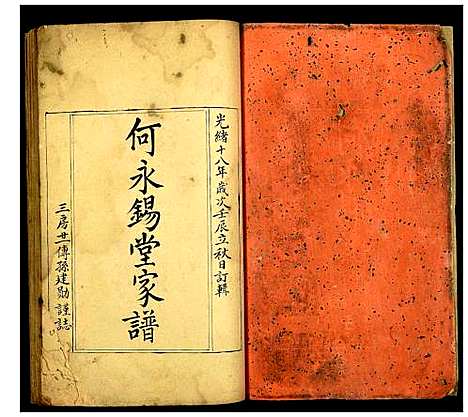 光緒十八年歲次壬辰立秋日訂輯
何永錫堂家譜
三房廿一傳孫建勛謹誌